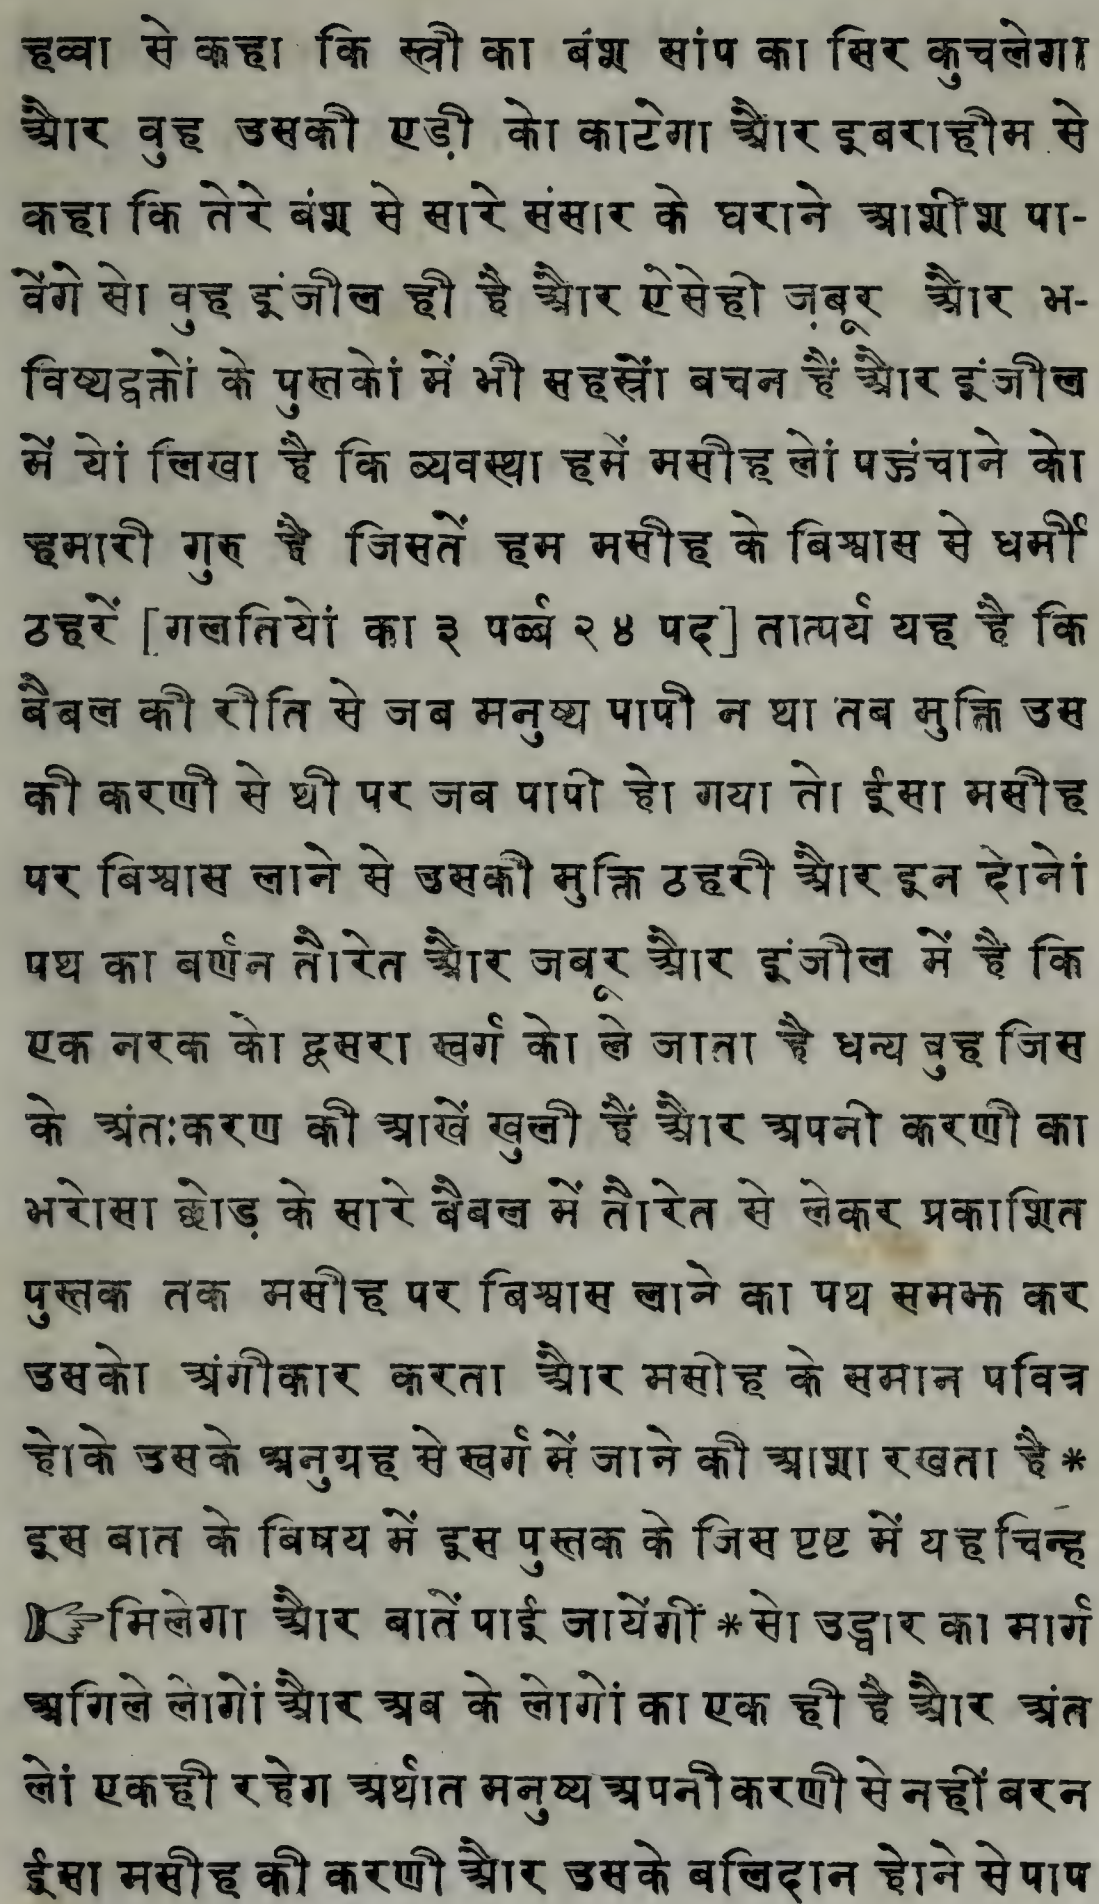 हव्वा से कहा कि स्त्री का बंश सांप का सिर कुचलेगा
और वुह उसकी एड़ी को काटेगा और इबराहीम से
कहा कि तेरे बंश से सारे संसार के घराने आशीश पा-
वेंगे सो वुह इंजील ही है और ऐसेही ज़बूर और भ-
विष्यद्वक्तों के पुस्तकों में भी सहस्त्रों बचन हैं और इंजील
में यों लिखा है कि व्यवस्था हमें मसीह लों पज्जंचाने को
हमारी गुरु है जिसतें हम मसीह के बिश्वास से धर्मी
ठहरें [गलतियों का ३ पर्ब्ब २४ पद] तात्पर्य यह है कि
बैबल की रीति से जब मनुष्य पापी न था तब मुक्ति उस
की करणी से थी पर जब पापी हो गया तो ईसा मसीह
पर बिश्वास लाने से उसकी मुक्ति ठहरी और इन दोनों
पथ का बर्णन तौरेत और जबूर और इंजील में है कि
एक नरक को दूसरा स्वर्ग को ले जाता है धन्य वुह जिस
के अंतःकरण की आखें खुली हैं और अपनी करणी का
भरोसा छोड़ के सारे बैबल में तौरेत से लेकर प्रकाशित
पुस्तक तक मसीह पर बिश्वास लाने का पथ समझ कर
उसको अंगीकार करता और मसीह के समान पवित्र
होके उसके अनुग्रह से स्वर्ग में जाने की आशा रखता है *
इस बात के बिषय में इस पुस्तक के जिस पृष्ट में यह चिन्ह
☞ मिलेगा और बातें पाई जायेंगीं * सो उद्धार का मार्ग
अगिले लोगों और अब के लोगों का एक ही है और अंत
लों एकही रहेग अर्थात मनुष्य अपनी करणी से नहीं बरन
ईसा मसीह की करणी और उसके बलिदान होने से पाप